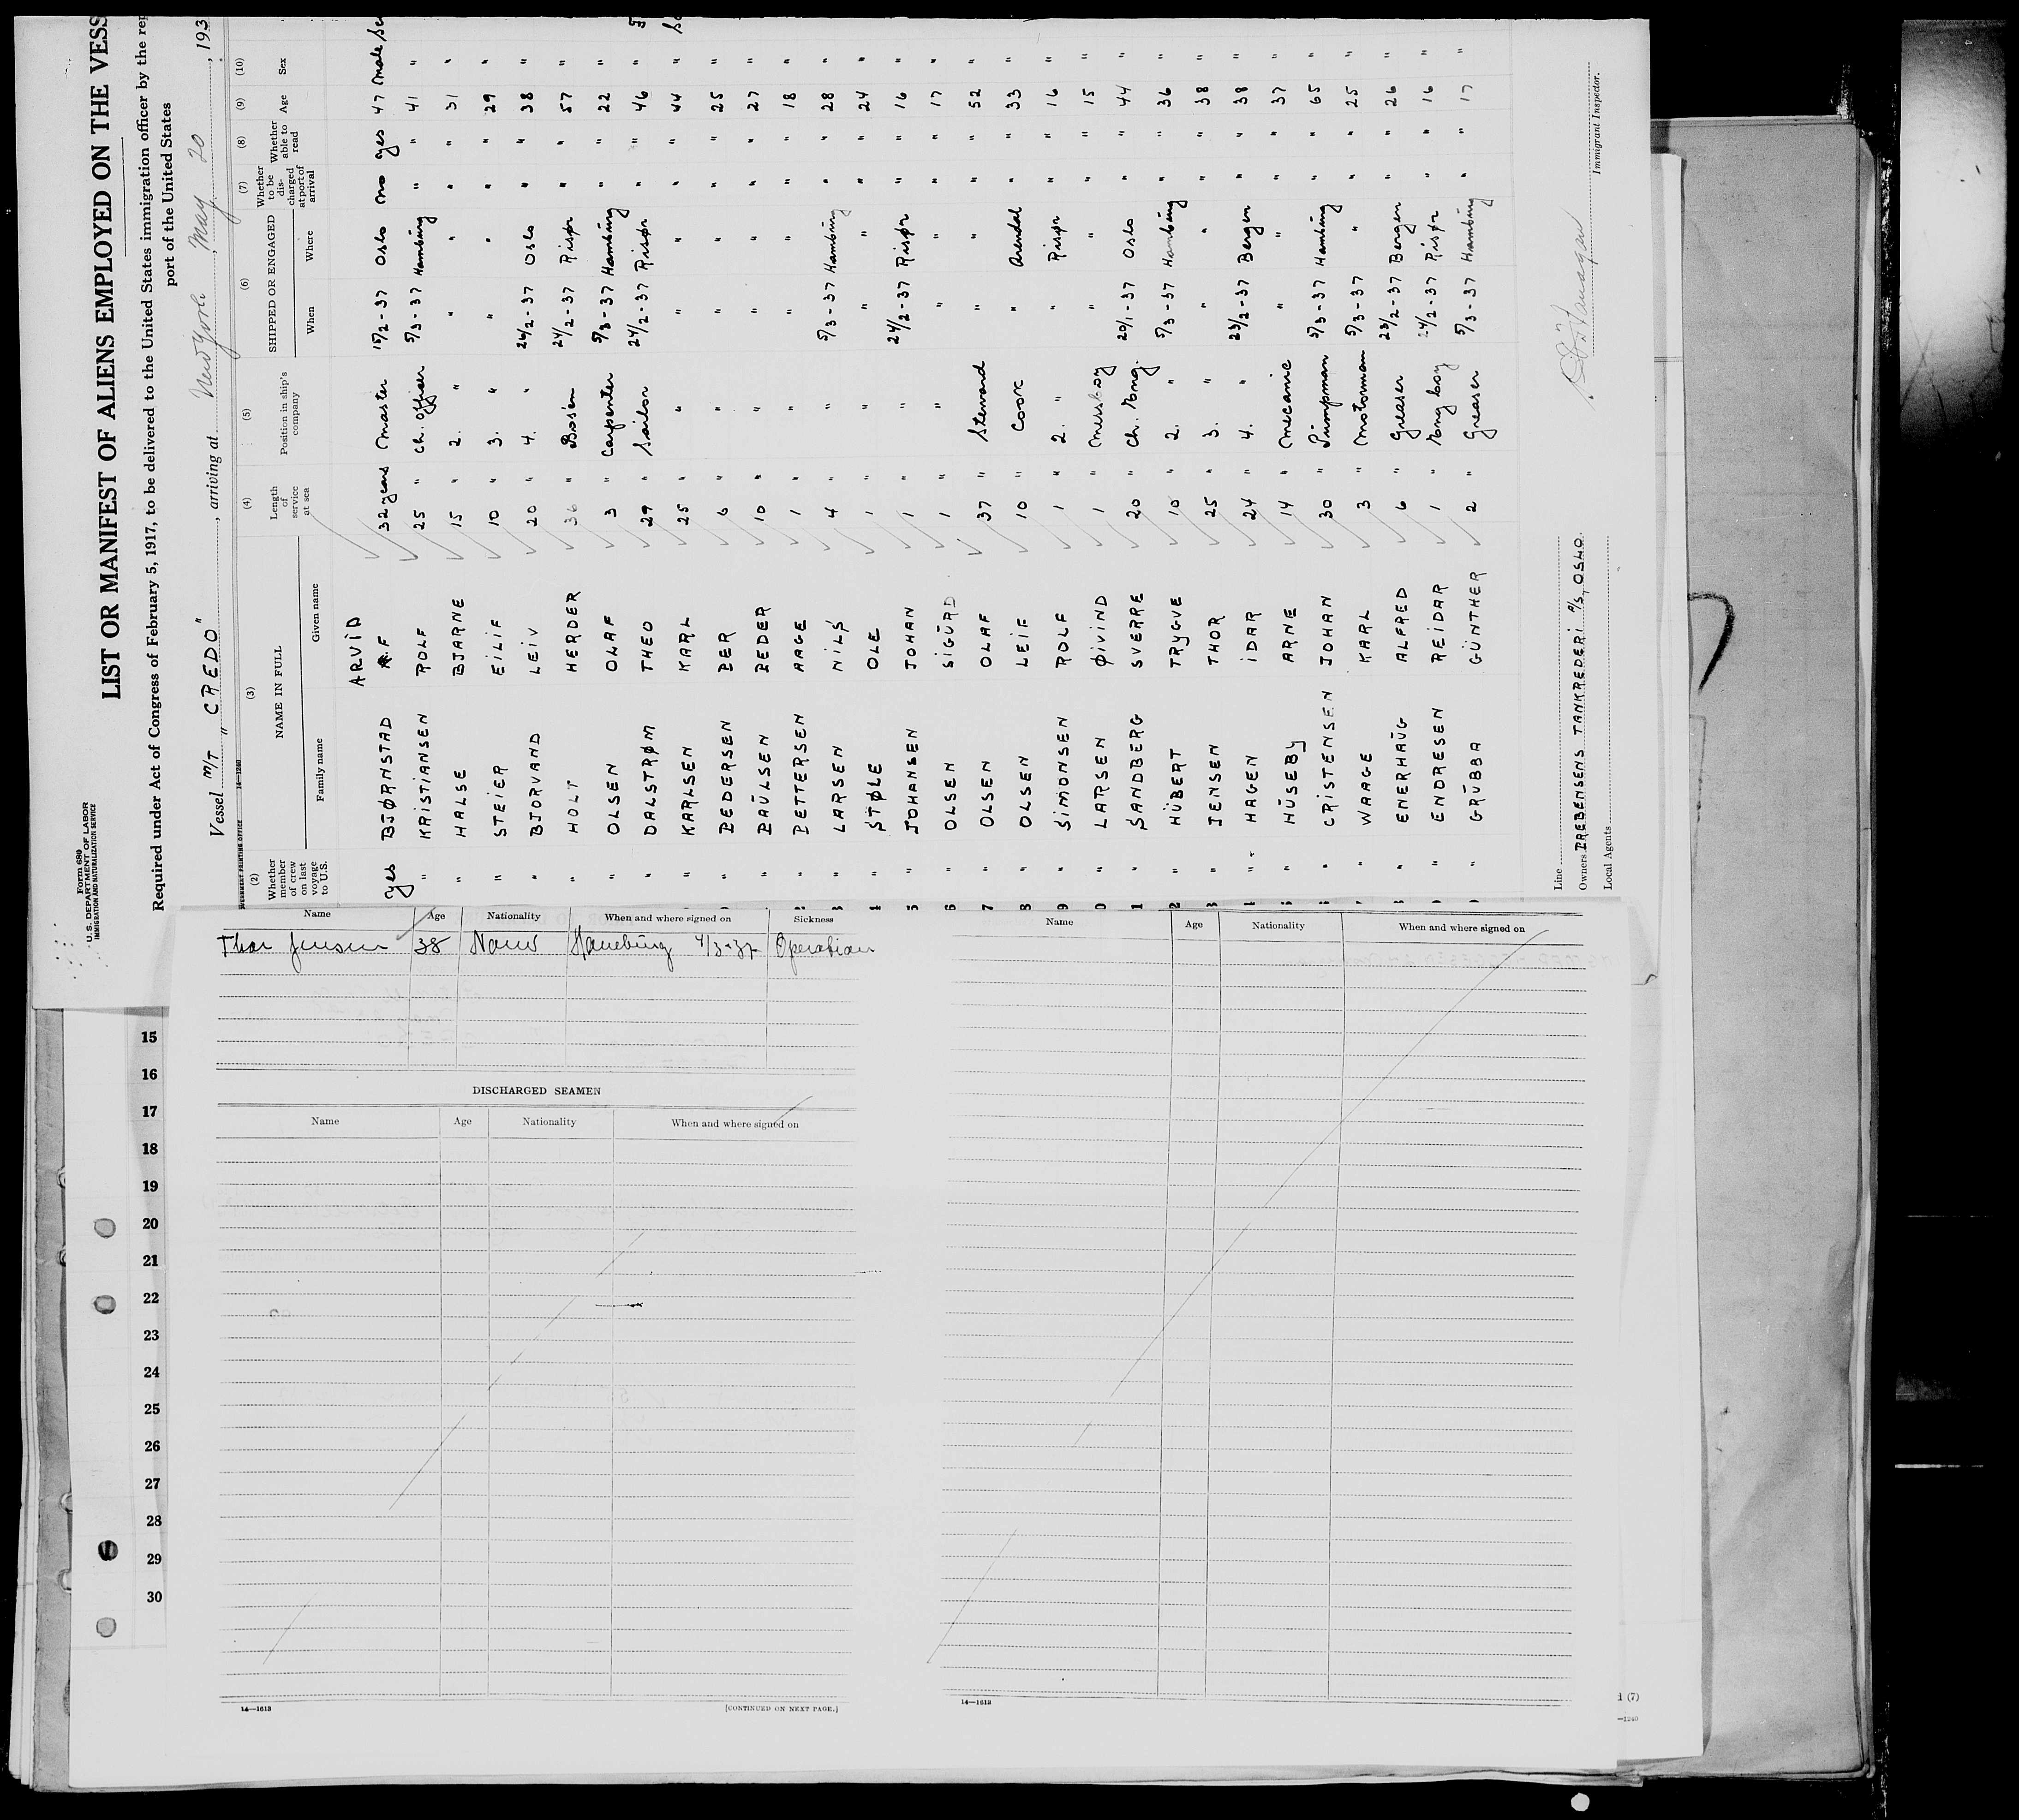 Form 680
U. S. DEPARTMENT OF LABOR
IMMIGRATION AND NATURALIZATION SERVICE
LIST OR MANIFEST OF ALIENS EMPLOYED ON THE VESS
Required under Act of Congress of February 5, 1917, to be delivered to the United States immigration officer by the rep
port of the United States
Vessel M/T "CREDO", arriving at New York, May 20, 193
(2) (3) (4) (5) (6) (7) (8) (9) (10)
Whether member of crew on last voyage to U.S. NAME IN FULL Family name Given name Length of service at sea Position in ship's company SHIPPED OR ENGAGED When Where Whether to be discharged at port of arrival Whether able to read Age Sex
ARVID
yes BJØRNSTAD A.F 32 years Master 15/2-37 Oslo no yes 47 male
" KRISTIANSEN ROLF 25 " Ch. officer 5/3-37 Hamburg " " 41 "
" HALSE BJARNE 15 " 2. " " " " " 31 "
" STEIER EILIF 10 " 3. " " " " " 29 "
" BJORVAND LEIV 20 " 4. " 24/2-37 Oslo " " 38 "
" HOLT HERDER 36 " Bosen 24/2-37 Risør " " 57 "
" OLSEN OLAF 3 " Carpenter 5/3-37 Hamburg " " 22 "
" DALSTRØM THEO 29 " Sailor 24/2-37 Risør " " 46 "
" KARLSEN KARL 25 " " " " " " 44 "
" PEDERSEN PER 6 " " " " " " 25 "
" PAULSEN PEDER 10 " " " " " " 27 "
" PETTERSEN AAGE 1 " " " " " " 18 "
" LARSEN NILS 4 " " 5/3-37 Hamburg " " 28 "
" STØLE OLE 1 " " " " " " 24 "
" JOHANSEN JOHAN 1 " " 24/2-37 Risør " " 16 "
" OLSEN SIGURD 1 " " " " " " 17 "
" OLSEN OLAF 37 " Steward " " " " 52 "
" OLSEN LEIF 10 " Cook " Arendal " " 33 "
" SIMONSEN ROLF 1 " 2. " " Risør " " 16 "
" LARSEN ØIVIND 1 " Messboy " " " " 15 "
" SANDBERG SVERRE 20 " Ch. Eng. 20/1-37 Oslo " " 44 "
" HÜBERT TRYGVE 10 " 2. " 5/3-37 Hamburg " " 36 "
" JENSEN THOR 25 " 3. " " " " " 38 "
" HAGEN IDAR 24 " 4. " 23/2-37 Bergen " " 38 "
" HUSEBY ARNE 14 " Mecanic " " " " 37 "
" CRISTENSEN JOHAN 30 " Pumpman 5/3-37 Hamburg " " 65 "
" WAAGE KARL 3 " Motorman 5/3-37 " " " 25 "
" ENERHAUG ALFRED 6 " Greaser 23/2-37 Bergen " " 26 "
" ENDRESEN REIDAR 1 " Eng boy 24/2-37 Risør " " 16 "
" GRUBBA GÜNTHER 2 " Greaser 5/3-37 Hamburg " " 17 "
Line
Owners PREBENSENS TANKREDERI A/S, OSLO.
Local Agents
Immigrant Inspector.
Name Age Nationality When and where signed on Sickness
Thor Jensen 38 Norw Hamburg 4/3-37 Operation
DISCHARGED SEAMEN
Name Age Nationality When and where signed on
14—1613 [CONTINUED ON NEXT PAGE.]
Name Age Nationality When and where signed on
14—1613
15
16
17
18
19
20
21
22
23
24
25
26
27
28
29
30
(7)
—1240